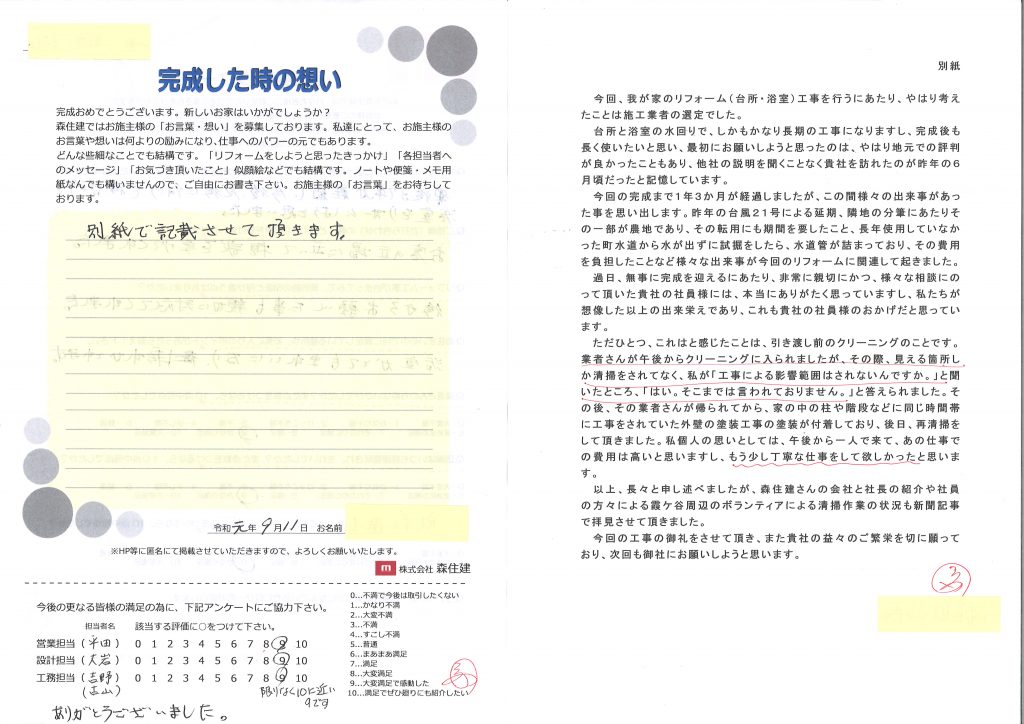 完成した時の想い
完成おめでとうございます。新しいお家はいかがでしょうか？
森住建ではお施主様の「お言葉・想い」を募集しております。私達にとって、お施主様の
お言葉や想いは何よりの励みになり、仕事へのパワーの元でもあります。
どんな些細なことでも結構です。「リフォームをしようと思ったきっかけ」「各担当者へ
のメッセージ」「お気づき頂いたこと」似顔絵などでも結構です。ノートや便箋・メモ用
紙なんでも構いませんので、ご自由にお書き下さい。お施主様の「お言葉」をお待ちして
おります。
別紙で記載させて頂きます。
令和 元年 9月 11日 お名前
※HP等に匿名にて掲載させていただきますので、よろしくお願いいたします。
m 株式会社 森住建
今後の更なる皆様の満足の為に、下記アンケートにご協力下さい。
担当者名 該当する評価に○をつけて下さい。
営業担当（平田） 0 1 2 3 4 5 6 7 8 9 10
設計担当（大岩） 0 1 2 3 4 5 6 7 8 9 10
工務担当（吉野） 0 1 2 3 4 5 6 7 8 9 10
（吉山）
限りなく10に近い
9です
ありがとうございました。
0…不満で今後は取引したくない
1…かなり不満
2…大変不満
3…不満
4…すこし不満
5…普通
6…まあまあ満足
7…満足
8…大変満足
9…大変満足で感動した
10…満足でぜひ廻りにも紹介したい
別紙
今回、我が家のリフォーム（台所・浴室）工事を行うにあたり、やはり考え
たことは施工業者の選定でした。
台所と浴室の水回りで、しかもかなり長期の工事になりますし、完成後も
長く使いたいと思い、最初にお願いしようと思ったのは、やはり地元での評判
が良かったこともあり、他社の説明を聞くことなく貴社を訪れたのが昨年の６
月頃だったと記憶しています。
今回の完成まで１年３か月が経過しましたが、この間様々の出来事があっ
た事を思い出します。昨年の台風２１号による延期、隣地の分筆にあたりそ
の一部が農地であり、その転用にも期間を要したこと、長年使用していなか
った町水道から水が出ずに試掘をしたら、水道管が詰まっており、その費用
を負担したことなど様々な出来事が今回のリフォームに関連して起きました。
過日、無事に完成を迎えるにあたり、非常に親切にかつ、様々な相談にの
って頂いた貴社の社員様には、本当にありがたく思っていますし、私たちが
想像した以上の出来栄えであり、これも貴社の社員様のおかげだと思ってい
ます。
ただひとつ、これはと感じたことは、引き渡し前のクリーニングのことです。
業者さんが午後からクリーニングに入られましたが、その際、見える箇所し
か清掃をされてなく、私が「工事による影響範囲はされないんですか。」と聞
いたところ、「はい。そこまでは言われておりません。」と答えられました。そ
の後、その業者さんが帰られてから、家の中の柱や階段などに同じ時間帯
に工事をされていた外壁の塗装工事の塗装が付着しており、後日、再清掃を
して頂きました。私個人の思いとしては、午後から一人で来て、あの仕事で
の費用は高いと思いますし、もう少し丁寧な仕事をして欲しかったと思いま
す。
以上、長々と申し述べましたが、森住建さんの会社と社長の紹介や社員
の方々による霞ケ谷周辺のボランティアによる清掃作業の状況も新聞記事
で拝見させて頂きました。
今回の工事の御礼をさせて頂き、また貴社の益々のご繁栄を切に願って
おり、次回も御社にお願いしようと思います。